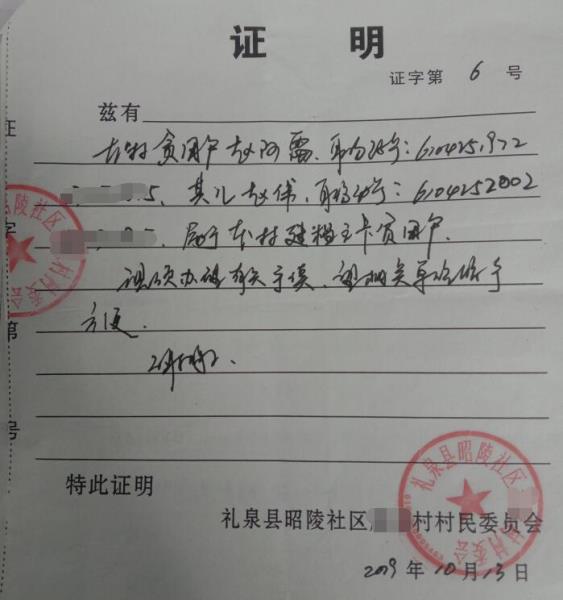 证 明
证字第 6 号
兹有
本村贫困户赵阿雷、身份证号:6104251972
5、其儿赵伟、身份证号:6104252002
属于本村建档立卡贫困户.
现须办理有关手续,望相关单位给予
方便.
特此证明
礼泉县昭陵社区 村村民委员会
2019 年 10 月 13 日
证
字
第
号
陵社区 村委会
礼泉县昭陵社区 村委会